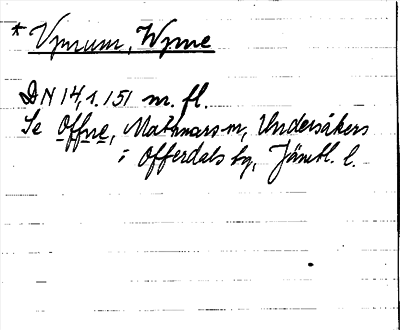 * Vpnum, Wpne
DN 14,1. 151 m. fl.
Se Offne, Mathmars-m, Undersåkers
i Offerdals hg, Jämtl. l.